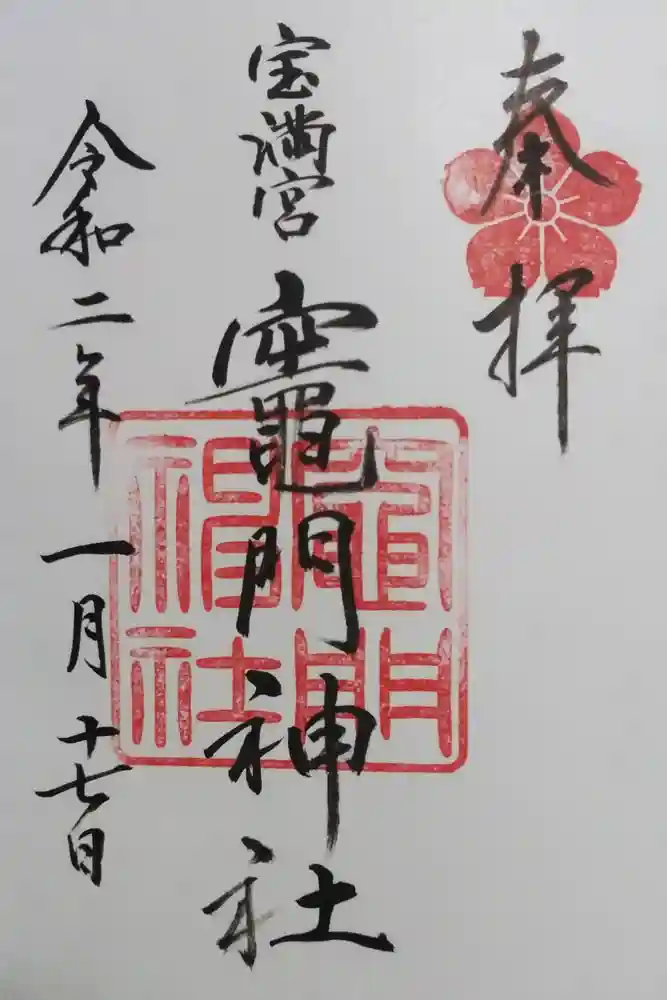 奉拝
宝満宮
竈門神社
令和二年一月十七日
竈門神社